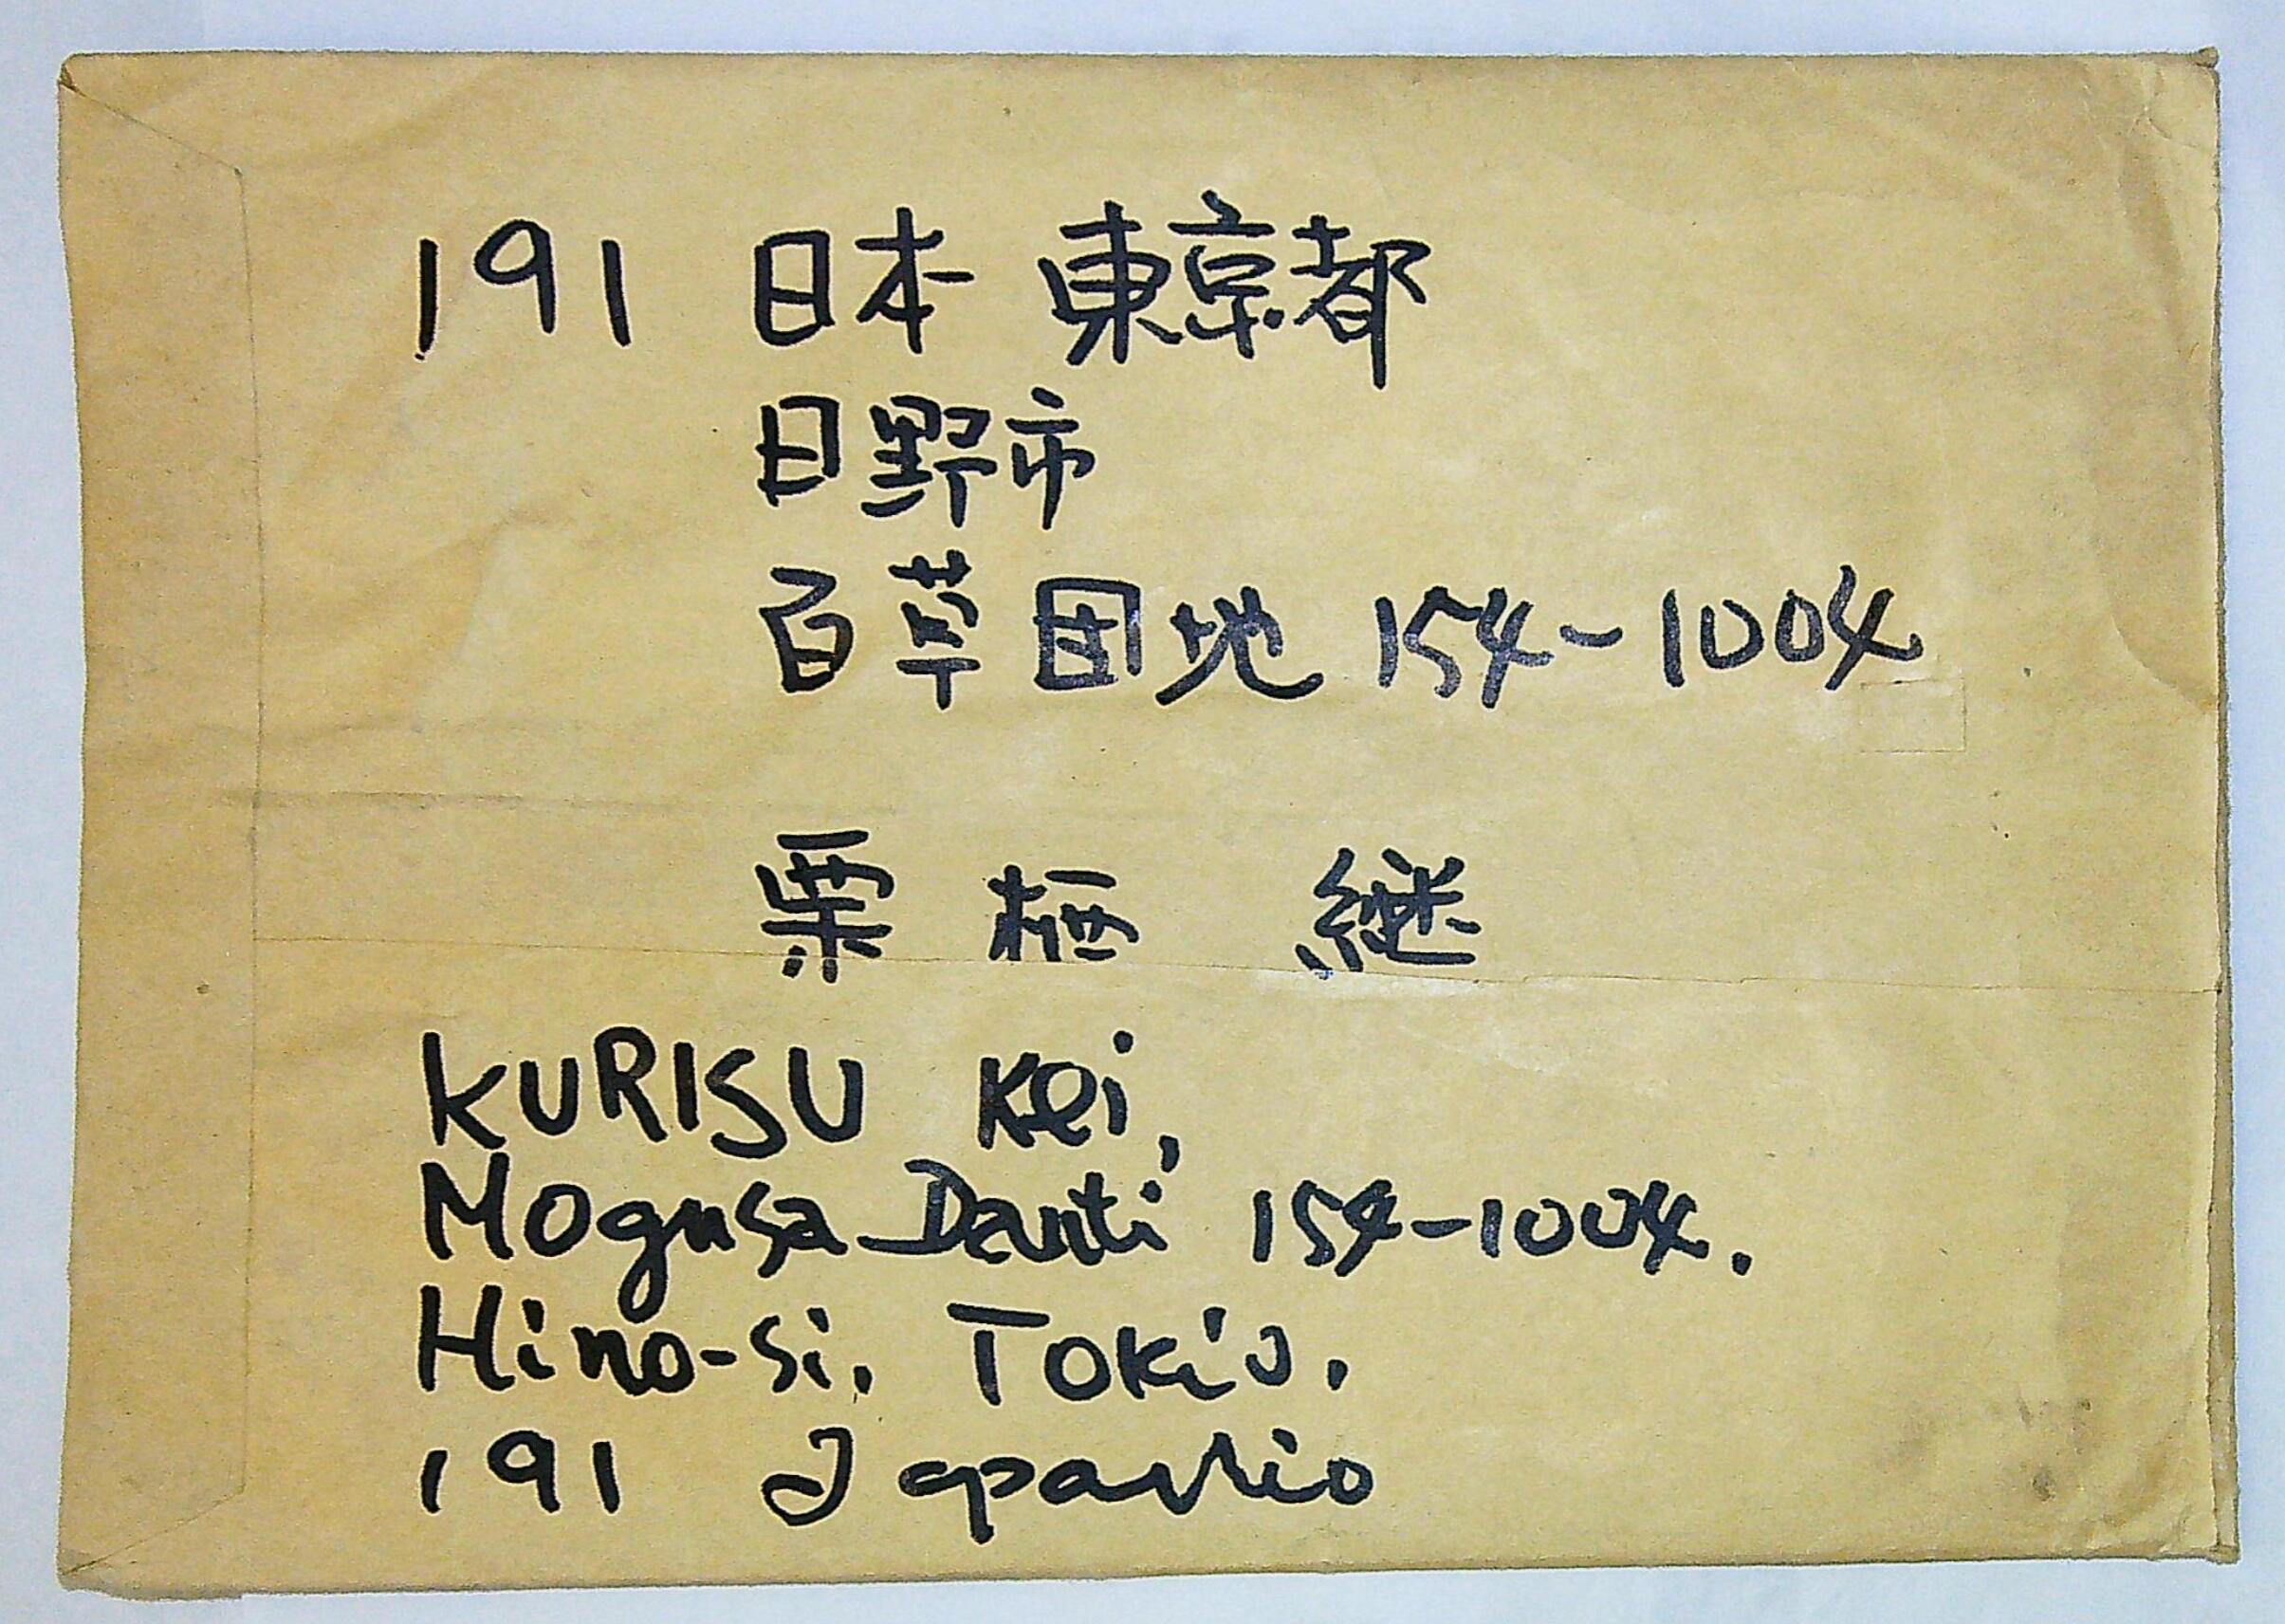 191 日本 東京都
日野市
百草団地 154-1004
栗栖 継
KURISU Kei,
Mogusa Danti 154-1004.
Hino-si, Tokio,
191 Japanio